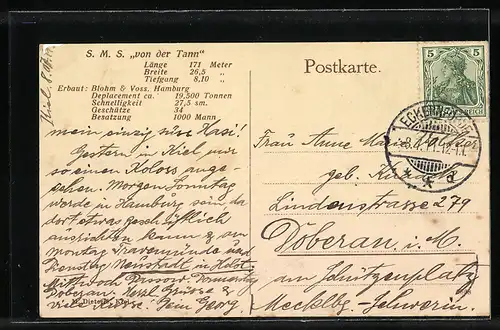 S. M. S. „von der Tann"
Länge 171 Meter
Breite 26,5 „
Tiefgang 8,10 „
Erbaut: Blohm & Voss, Hamburg
Deplacement ca. 19,500 Tonnen
Schnelligkeit 27,5 sm.
Geschütze 34
Besatzung 1000 Mann
Postkarte.
5 5
REICH
ECKERNFÖRDE
8.4.11.12-1.
* * a
Kiel,
mein einzig süss Hasi!
Gestern in Kiel mir
so einen Koloss ange
sehen. Morgen Sonntag
werde in Hamburg sein, da
dort etwas geschäftlich
ausrichten kann &
montag Travemünde und
Dienstag Neustadt in Holst.
Mittwoch Donnerstag
Doberan. Herzl Grüsse &
viele Küsse. Dein Georg.
Frau Anne Marie
geb.
Lindenstrasse 279
Doberan i. M.
am Schützenplatz
Mecklbg-Schwerin.